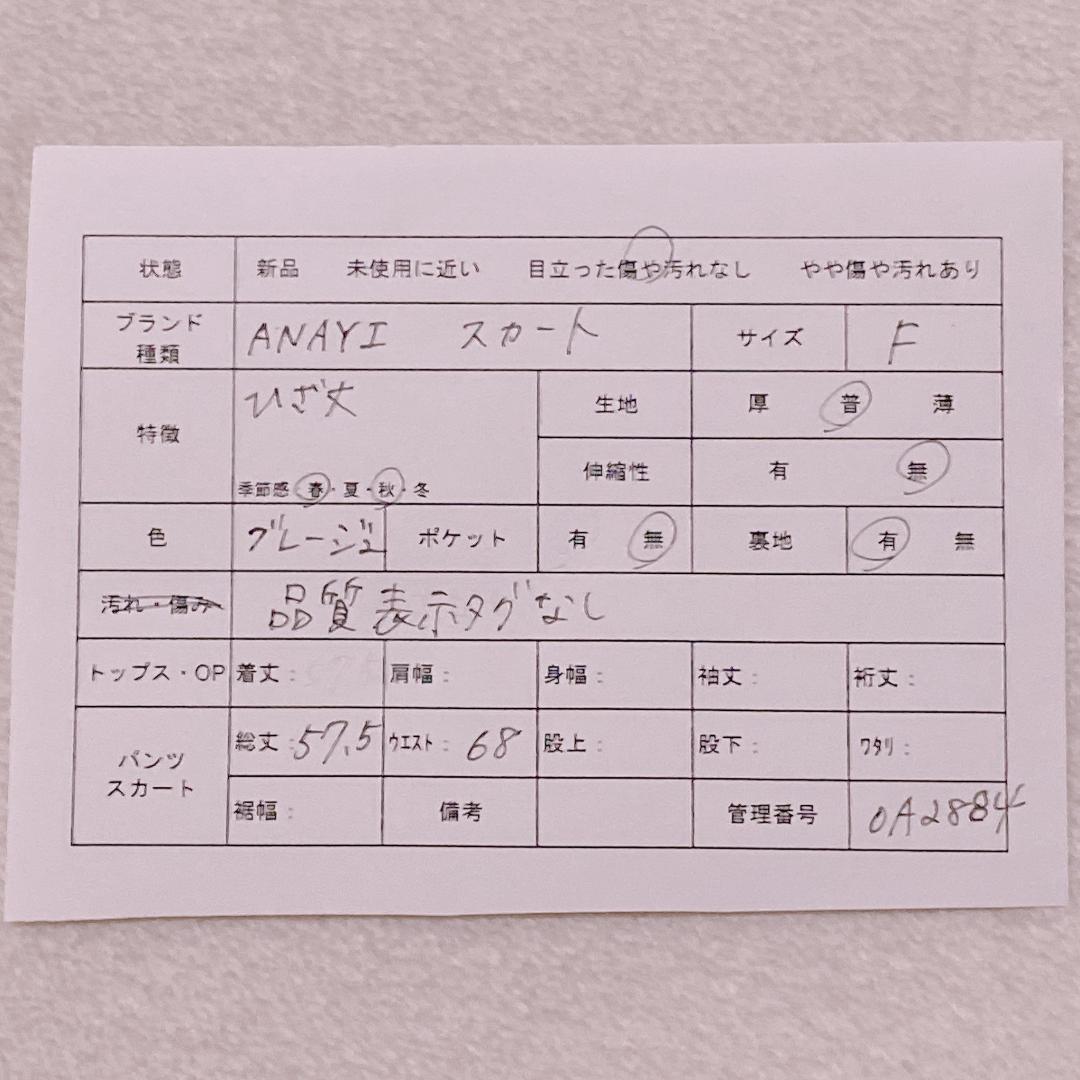 状態 新品 未使用に近い 目立った傷や汚れなし やや傷や汚れあり
ブランド 種類 ANAYI スカート サイズ F
特徴 ひざ丈 生地 厚 普 薄
季節感 春・夏・秋・冬 伸縮性 有 無
色 グレージュ ポケット 有 無 裏地 有 無
汚れ・傷み 品質表示タグなし
トップス・OP 着丈: 肩幅: 身幅: 袖丈: 裄丈:
パンツ スカート 総丈:57.5 ウエスト:68 股上: 股下: ワタリ:
裾幅: 備考 管理番号 0A2884